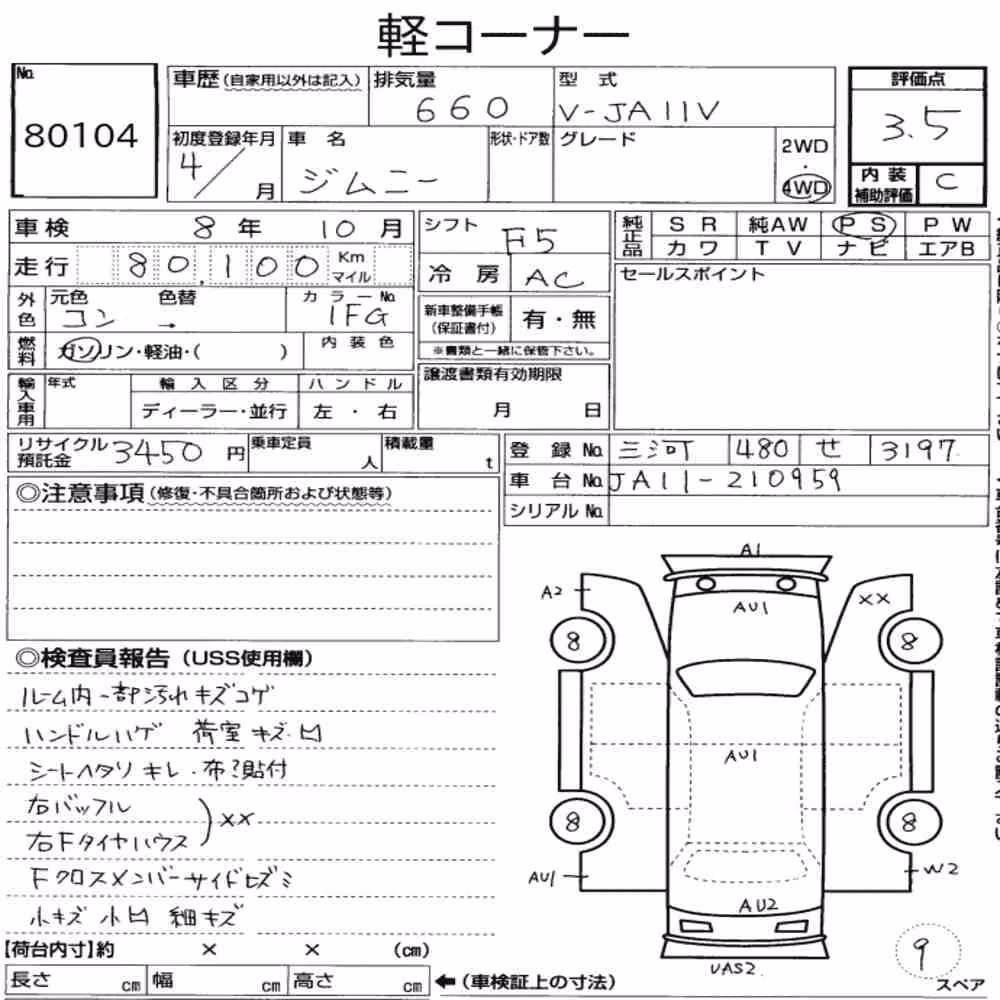 軽コーナー
No. 80104
車歴 (自家用以外は記入)
排気量 660
型 式 V-JA11V
評価点 3.5
初度登録年月 4/ 月
車 名 ジムニー
形状・ドア数
グレード
2WD
・
4WD
内 装
補助評価 C
車検 8年 10月
走行 80,100 Km マイル
シフト F5
冷 房 AC
純正品 SR 純AW PS PW
カワ TV ナビ エアB
セールスポイント
外色 元色 コン 色替 → カラーNo. 1FG
新車整備手帳
(保証書付) 有・無
※書類と一緒に保管下さい。
燃料 ガソリン・軽油・( )
内 装 色
譲渡書類有効期限
月 日
輸入車用 年式 輸 入 区 分 ハ ン ド ル
ディーラー・並行 左 ・ 右
リサイクル
預託金 3450 円
乗車定員 人
積載量 t
登 録 No. 三河 480 せ 3197
車 台 No. JA11-210959
シリアル No.
◎注意事項 (修復・不具合箇所および状態等)
◎検査員報告 (USS使用欄)
ルーム内一部汚れ キズコゲ
ハンドルハゲ 荷室 キズ・凹
シートヘタリ キレ・布?貼付
右バッフル
右Fタイヤハウス ) XX
Fクロスメンバーサイドヒズミ
小キズ 小凹 細キズ
【荷台内寸】約 × × (cm)
長さ cm 幅 cm 高さ cm
←(車検証上の寸法)
A1
A2
AU1
XX
8
8
AU1
8
8
AU1
W2
AU2
UAS2
9
スペア